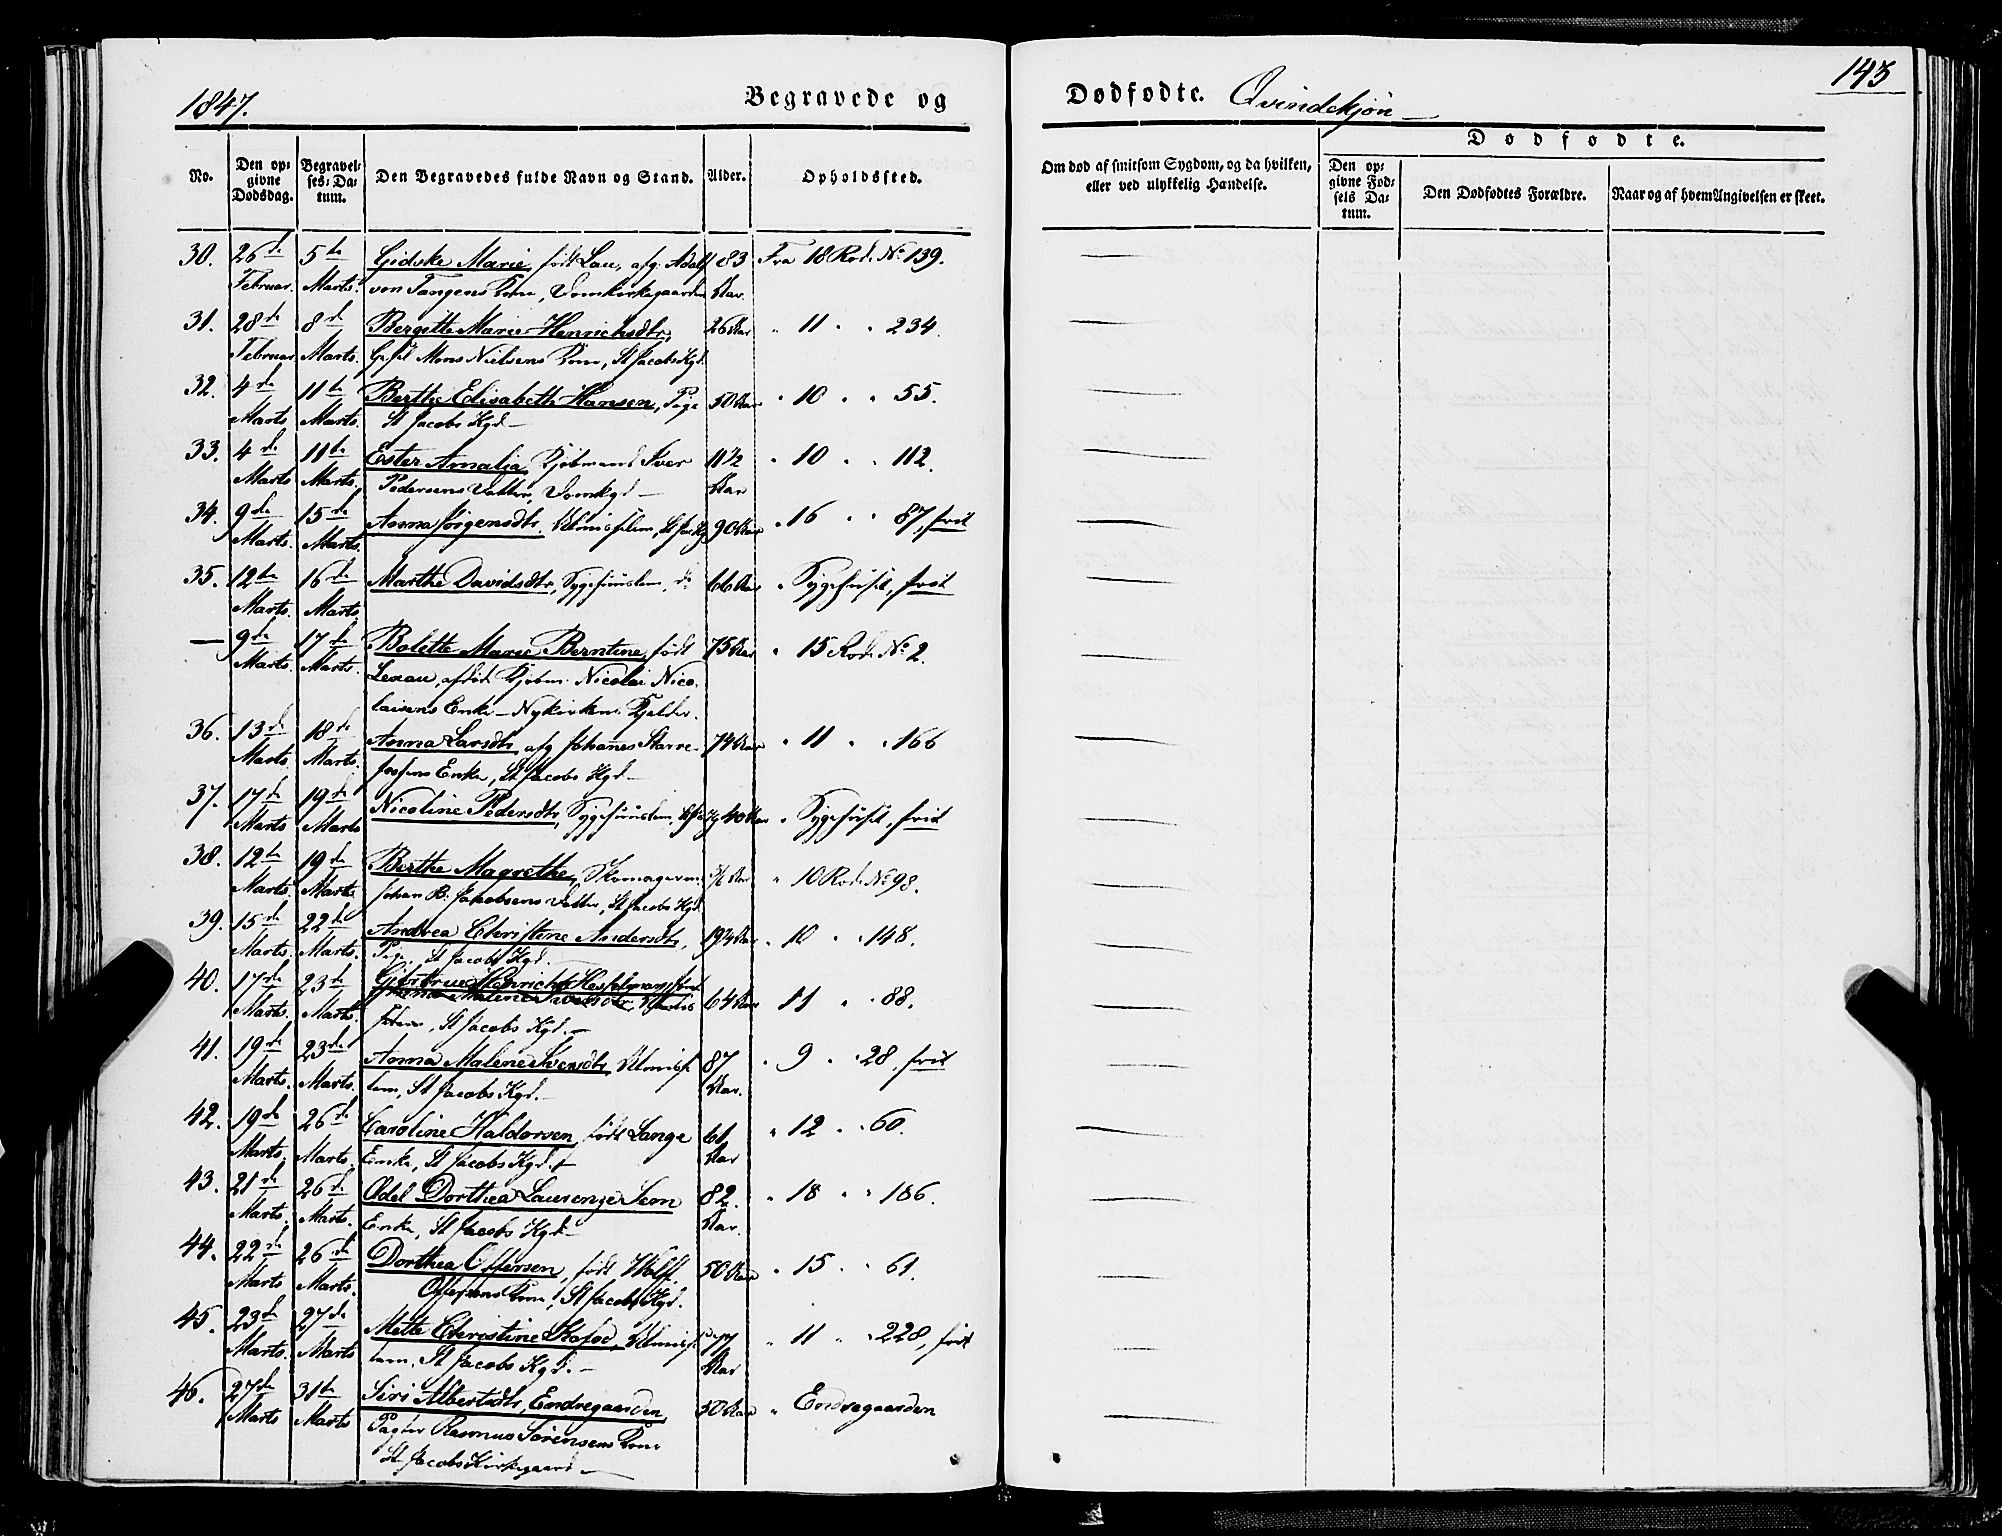 1847.
Begravede og
Dødfødte. Qvindekjøn
143
No.
Den op-
givne
Dødsdag.
Begravel-
ses-Da-
tum.
Den Begravedes fulde Navn og Stand.
Alder.
Opholdssted.
Om død af smitsom Sygdom, og da hvilken,
eller ved ulykkelig Hændelse.
Dødfødte.
Den op-
givne Fød-
sels Da-
tum.
Den Dødfødtes Forældre.
Naar og af hvem Angivelsen er skeet.
30. 26de 5te Gidske Marie, født Lau, afg. Adolf 83 Fra 18 Rode No 139.
Februar. Marts. von Tangens Kone, Domkirkegaarden Aar.
31. 28de 8de Bergitte Marie Henrichsdtr, 26 Aar " 11 " " 234.
Februar Marts. Mons Nielsens Kone, St Jacobs Kgd.
32. 4de 11te Berthe Elisabeth Hansen, Pige 50 Aar " 10 " " 55.
Marts. Marts. St Jacobs Kgd.
33. 4de 11te Ester Amalia, Kjøbmand Iver 11½ " 10 " " 112.
Marts Marts. Pedersens Datter, Domkgd Aar
34. 9de 15de Anna Jørgensdtr. Almisselem, St Jac Kg 90 Aar " 16 " " 87, frit
Marts. Marts.
35. 12te 16de Marthe Davidsdtr, Sygehuuslem, do 66 Aar " Sygehuset, frit
Marts. Marts.
— 9de 17de Bolette Marie Berntine, født 75 Aar " 15 Rode No 2.
Marts. Marts. afdøde Kjøbm. Nicolai Nico-
laisens Enke — Nykirkens Kjelder.
36. 13de 18de Anna Larsdtr, afg Johanes Starre- 74 Aar " 11 " " 166
Marts. Marts. Enke, St Jacobs Kgd
37. 17de 19de Nicoline Pedersdtr, Sygehuuslem, 40 Aar " Sygehuset, frit
Marts Marts
38. 12te 19de Berthe Magrethe, Skomagerm. Aar " 10 Rode No 98.
Marts. Marts Johan B. Jakobsens Datter, St Jacobs Kgd.
39. 15de 22de Andrea Christine Andersdtr, 19¼ Aar " 10 " " 148.
Marts. Marts. Pige, St Jacobs Kgd.
40. 17de 23de 64 Aar " 11 " " 88.
Marts. Marts. St Jacobs Kgd.
41. 19de 23de Anna Malene Svensdtr, Almisse 87 " 9 " " 28, frit
Marts. Marts. lem, St Jacobs Kgd. Aar.
42. 19de 26de Caroline Haldorsen, født Lange 61 " 12 " " 60.
Marts. Marts. Enke, St Jacobs Kgd. Aar
43. 21de 26de Odel Dorthea Laurenze Sem 82. " 18 " " 186.
Marts. Marts. Enke, St Jacobs Kgd Aar.
44. 22de 26de Dorthea Offersen, født Wolff 50 Aar " 15 " " 61.
Marts Marts. Offersens Kone, St Jacobs Kgd.
45. 23de 27de Mette Christine Almisse 77 " 11 " " 228, frit
Marts. Marts lem. St Jacobs Kgd. Aar
46. 27de 31te Siri Albertsdtr, Endregaarden, 50 Aar " Endregaarden
Marts Marts Pagter Rasmus Sørensens Kone
St Jacobs Kirkegaard